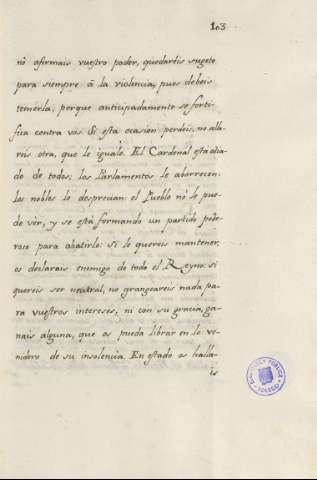 103
nò afirmais vuestro poder, quedaréis sugeto
para siempre â la violencia, pues debeis
temerla, porque anticipadamente se forti-
fica contra vòs. Si esta ocasion perdéis, no alla-
reis otra, que le iguale. El Cardenal està odia-
do de todos; los Parlamentos le aborrecen;
los nobles le desprecian: el Pueblo nò le pue-
de vèr, y se està formando un partido pode-
roso para abatirlo: Si le quereis mantener,
os declarais enemigo de todo el Reyno: si
quereis ser neutral, no grangeareis nada pa-
ra vuestros intereses, ni con su gracia, ga-
nais alguna, que os pueda librar en lo ve-
nidero de su insolencia. En estado os hallá-
is
BIBLIOTECA PUBLICA
TOLEDO